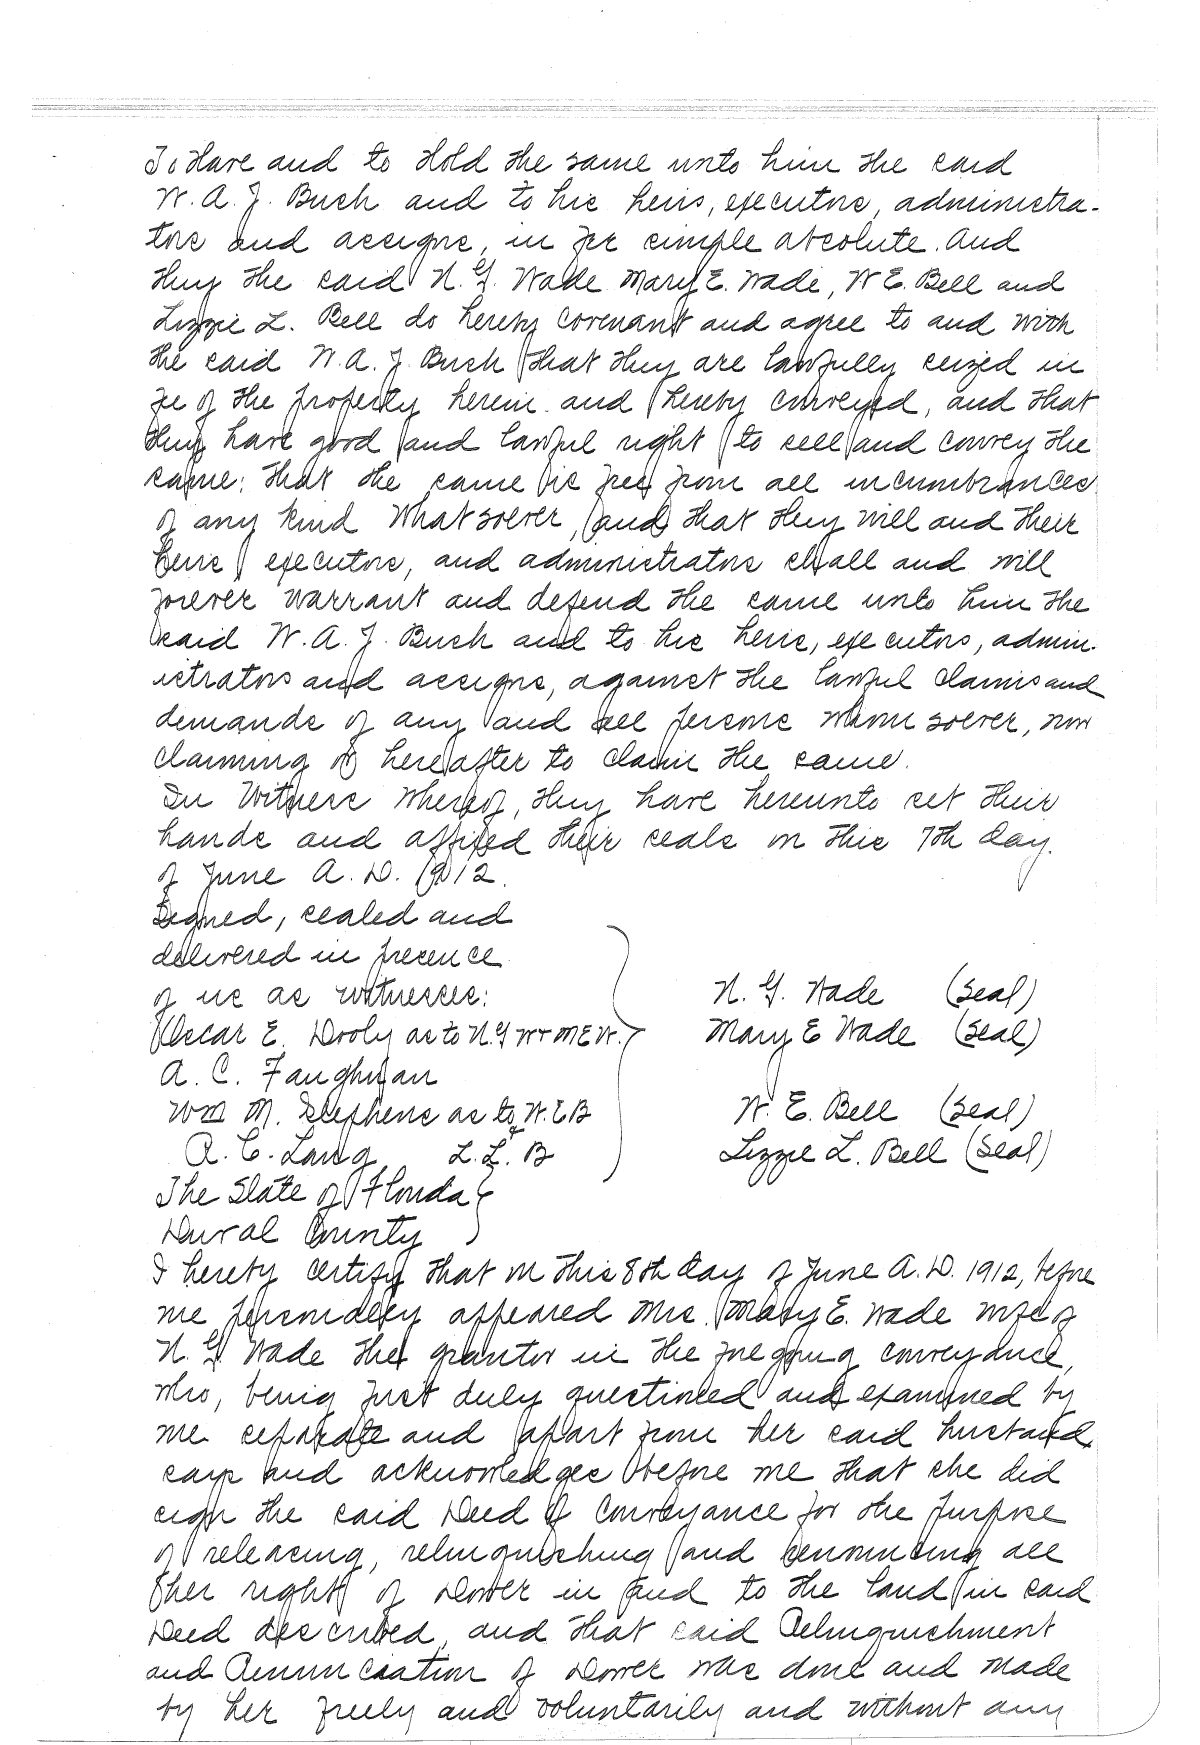 To Have and to Hold the same unto him the said
W. A. J. Bush and to his heirs, executors, administra-
tors and assigns, in fee simple absolute. And
they the said N. G. Wade Mary E. Wade, W E. Bell and
Lizzie L. Bell do hereby covenant and agree to and with
the said W. A. J. Bush that they are lawfully seized in
fee of the property herein and hereby conveyed, and that
they have good and lawful right to sell and convey the
same: that the same is free from all incumbrances
of any kind whatsoever, and that they will and their
heirs executors, and administrators shall and will
forever warrant and defend the same unto him the
said W. A. J. Bush and to his heirs, executors, admin-
istrators and assigns, against the lawful claims and
demands of any and all persons whomsoever, now
claiming or hereafter to claim the same.
In Witness whereof, they have hereunto set their
hands and affixed their seals on this 7th day
of June A. D. 1912.
Signed, sealed and
delivered in presence
of us as witnesses: N. G. Wade (Seal)
Oscar E. Dooly as to N. G W & M E W. Mary E Wade (Seal)
A. C. Faughnan
Wm M. Stephens as to W. E B W. E. Bell (Seal)
A. C. Lang & L. L. B Lizzie L. Bell (Seal)
The State of Florida
Duval County
I hereby certify that on this 8th day of June A. D. 1912, before
me personally appeared Mrs. Mary E. Wade wife of
N. G. Wade the grantor in the foregoing conveyance,
who, being first duly questioned and examined by
me separate and apart from her said husband,
says and acknowledges before me that she did
sign the said Deed of Conveyance for the purpose
of releasing, relinquishing and renouncing all
her right of Dower in and to the land in said
Deed described, and that said Relinquishment
and Renunciation of Dower was done and made
by her freely and voluntarily and without any